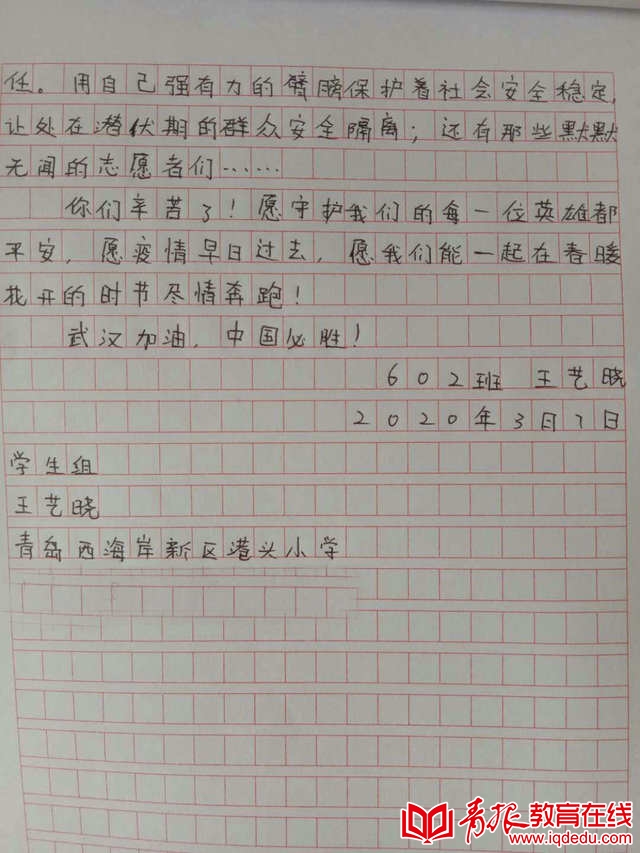 任。用自己强有力的臂膀保护着社会安全稳定,
让处在潜伏期的群众安全隔离；还有那些默默
无闻的志愿者们……
你们辛苦了！愿守护我们的每一位英雄都
平安，愿疫情早日过去，愿我们能一起在春暖
花开的时节尽情奔跑！
武汉加油，中国必胜！
602班 王艺晓
2020年3月7日
学生组
王艺晓
青岛西海岸新区港头小学
青报教育在线
www.iqdedu.com